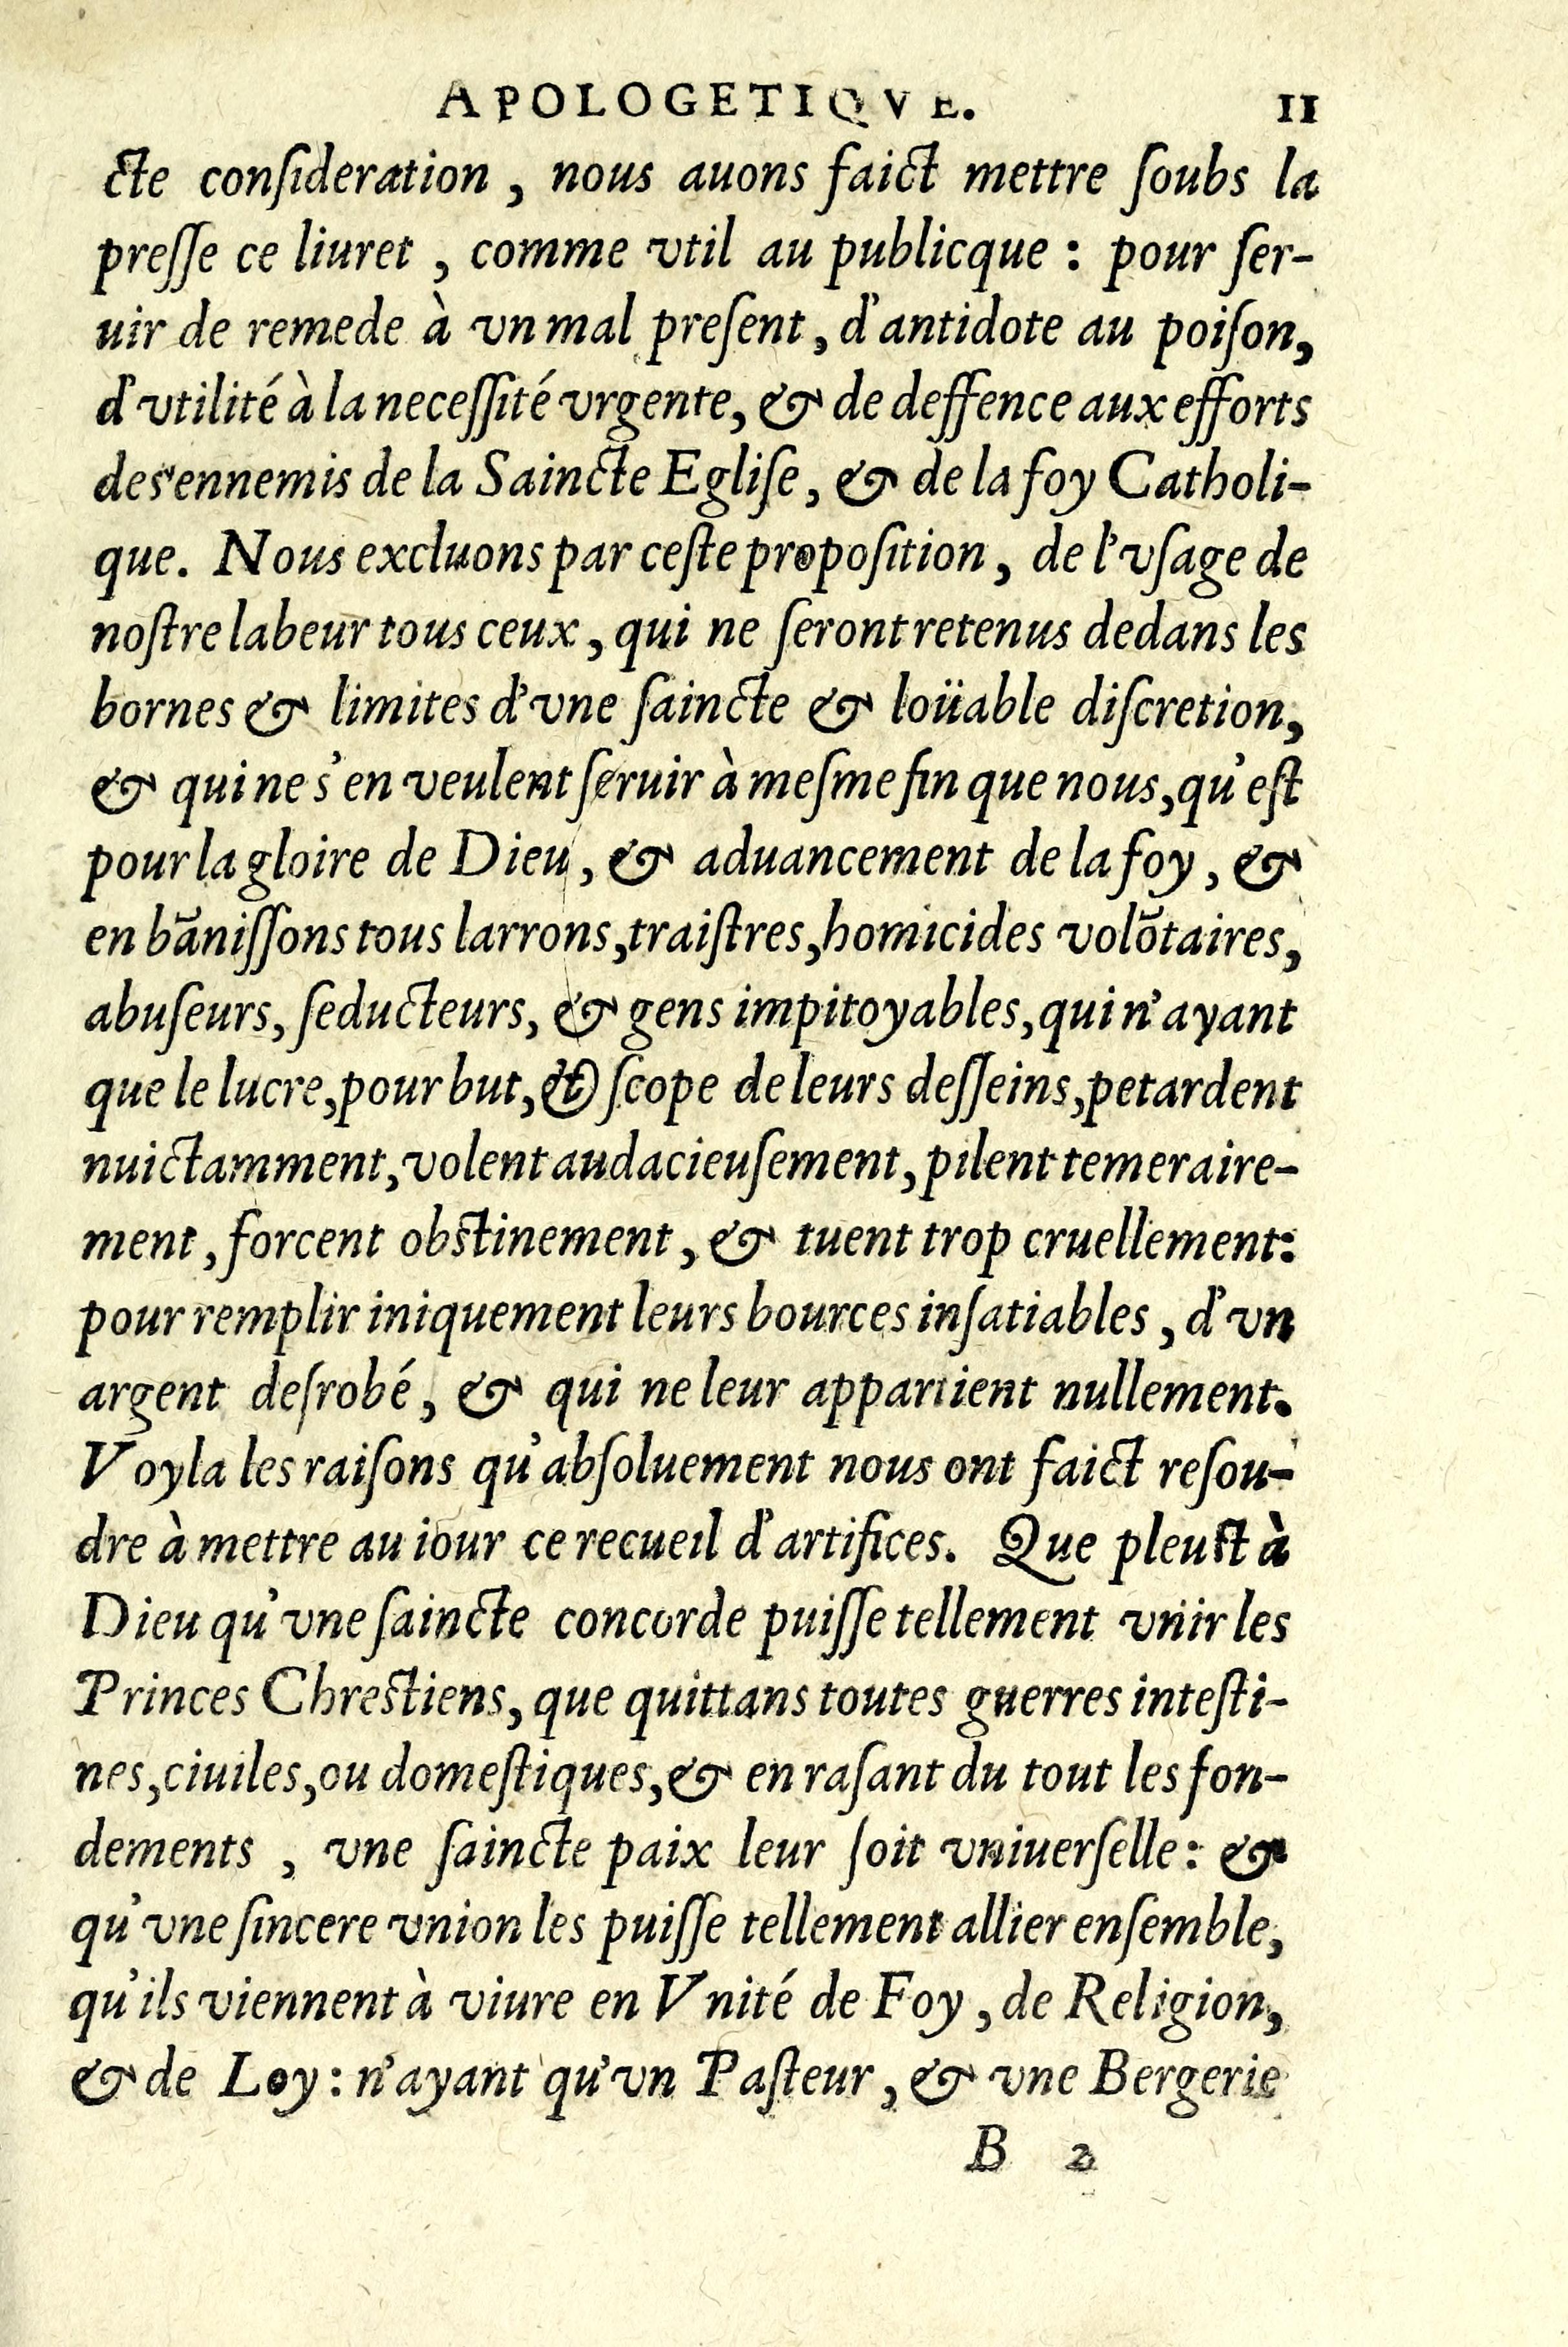 APOLOGETIQVE. 11
cte conſideration, nous auons faict mettre ſoubs la
preſſe ce liuret, comme vtil au publicque: pour ſer-
uir de remede à vn mal preſent, d'antidote au poiſon,
d'vtilité à la neceſſité vrgente, & de deffence aux efforts
des ennemis de la Saincte Egliſe, & de la foy Catholi-
que. Nous excluons par ceſte propoſition, de l'vſage de
noſtre labeur tous ceux, qui ne ſeront retenus dedans les
bornes & limites d'vne ſaincte & loüable diſcretion,
& qui ne s'en veulent ſeruir à meſme fin que nous, qu'eſt
pour la gloire de Dieu, & aduancement de la foy, &
en bãniſſons tous larrons, traiſtres, homicides volõtaires,
abuſeurs, ſeducteurs, & gens impitoyables, qui n'ayant
que le lucre, pour but, & ſcope de leurs deſſeins, petardent
nuictamment, volent audacieuſement, pilent temeraire-
ment, forcent obſtinement, & tuent trop cruellement:
pour remplir iniquement leurs bources inſatiables, d'vn
argent deſrobé, & qui ne leur appartient nullement.
Voyla les raiſons qu'abſoluement nous ont faict reſou-
dre à mettre au iour ce recueil d'artifices. Que pleuſt à
Dieu qu'vne ſaincte concorde puiſſe tellement vnir les
Princes Chreſtiens, que quittans toutes guerres inteſti-
nes, ciuiles, ou domeſtiques, & en raſant du tout les fon-
dements, vne ſaincte paix leur ſoit vniuerſelle: &
qu'vne ſincere vnion les puiſſe tellement allier enſemble,
qu'ils viennent à viure en Vnité de Foy, de Religion,
& de Loy: n'ayant qu'vn Paſteur, & vne Bergerie
B 2